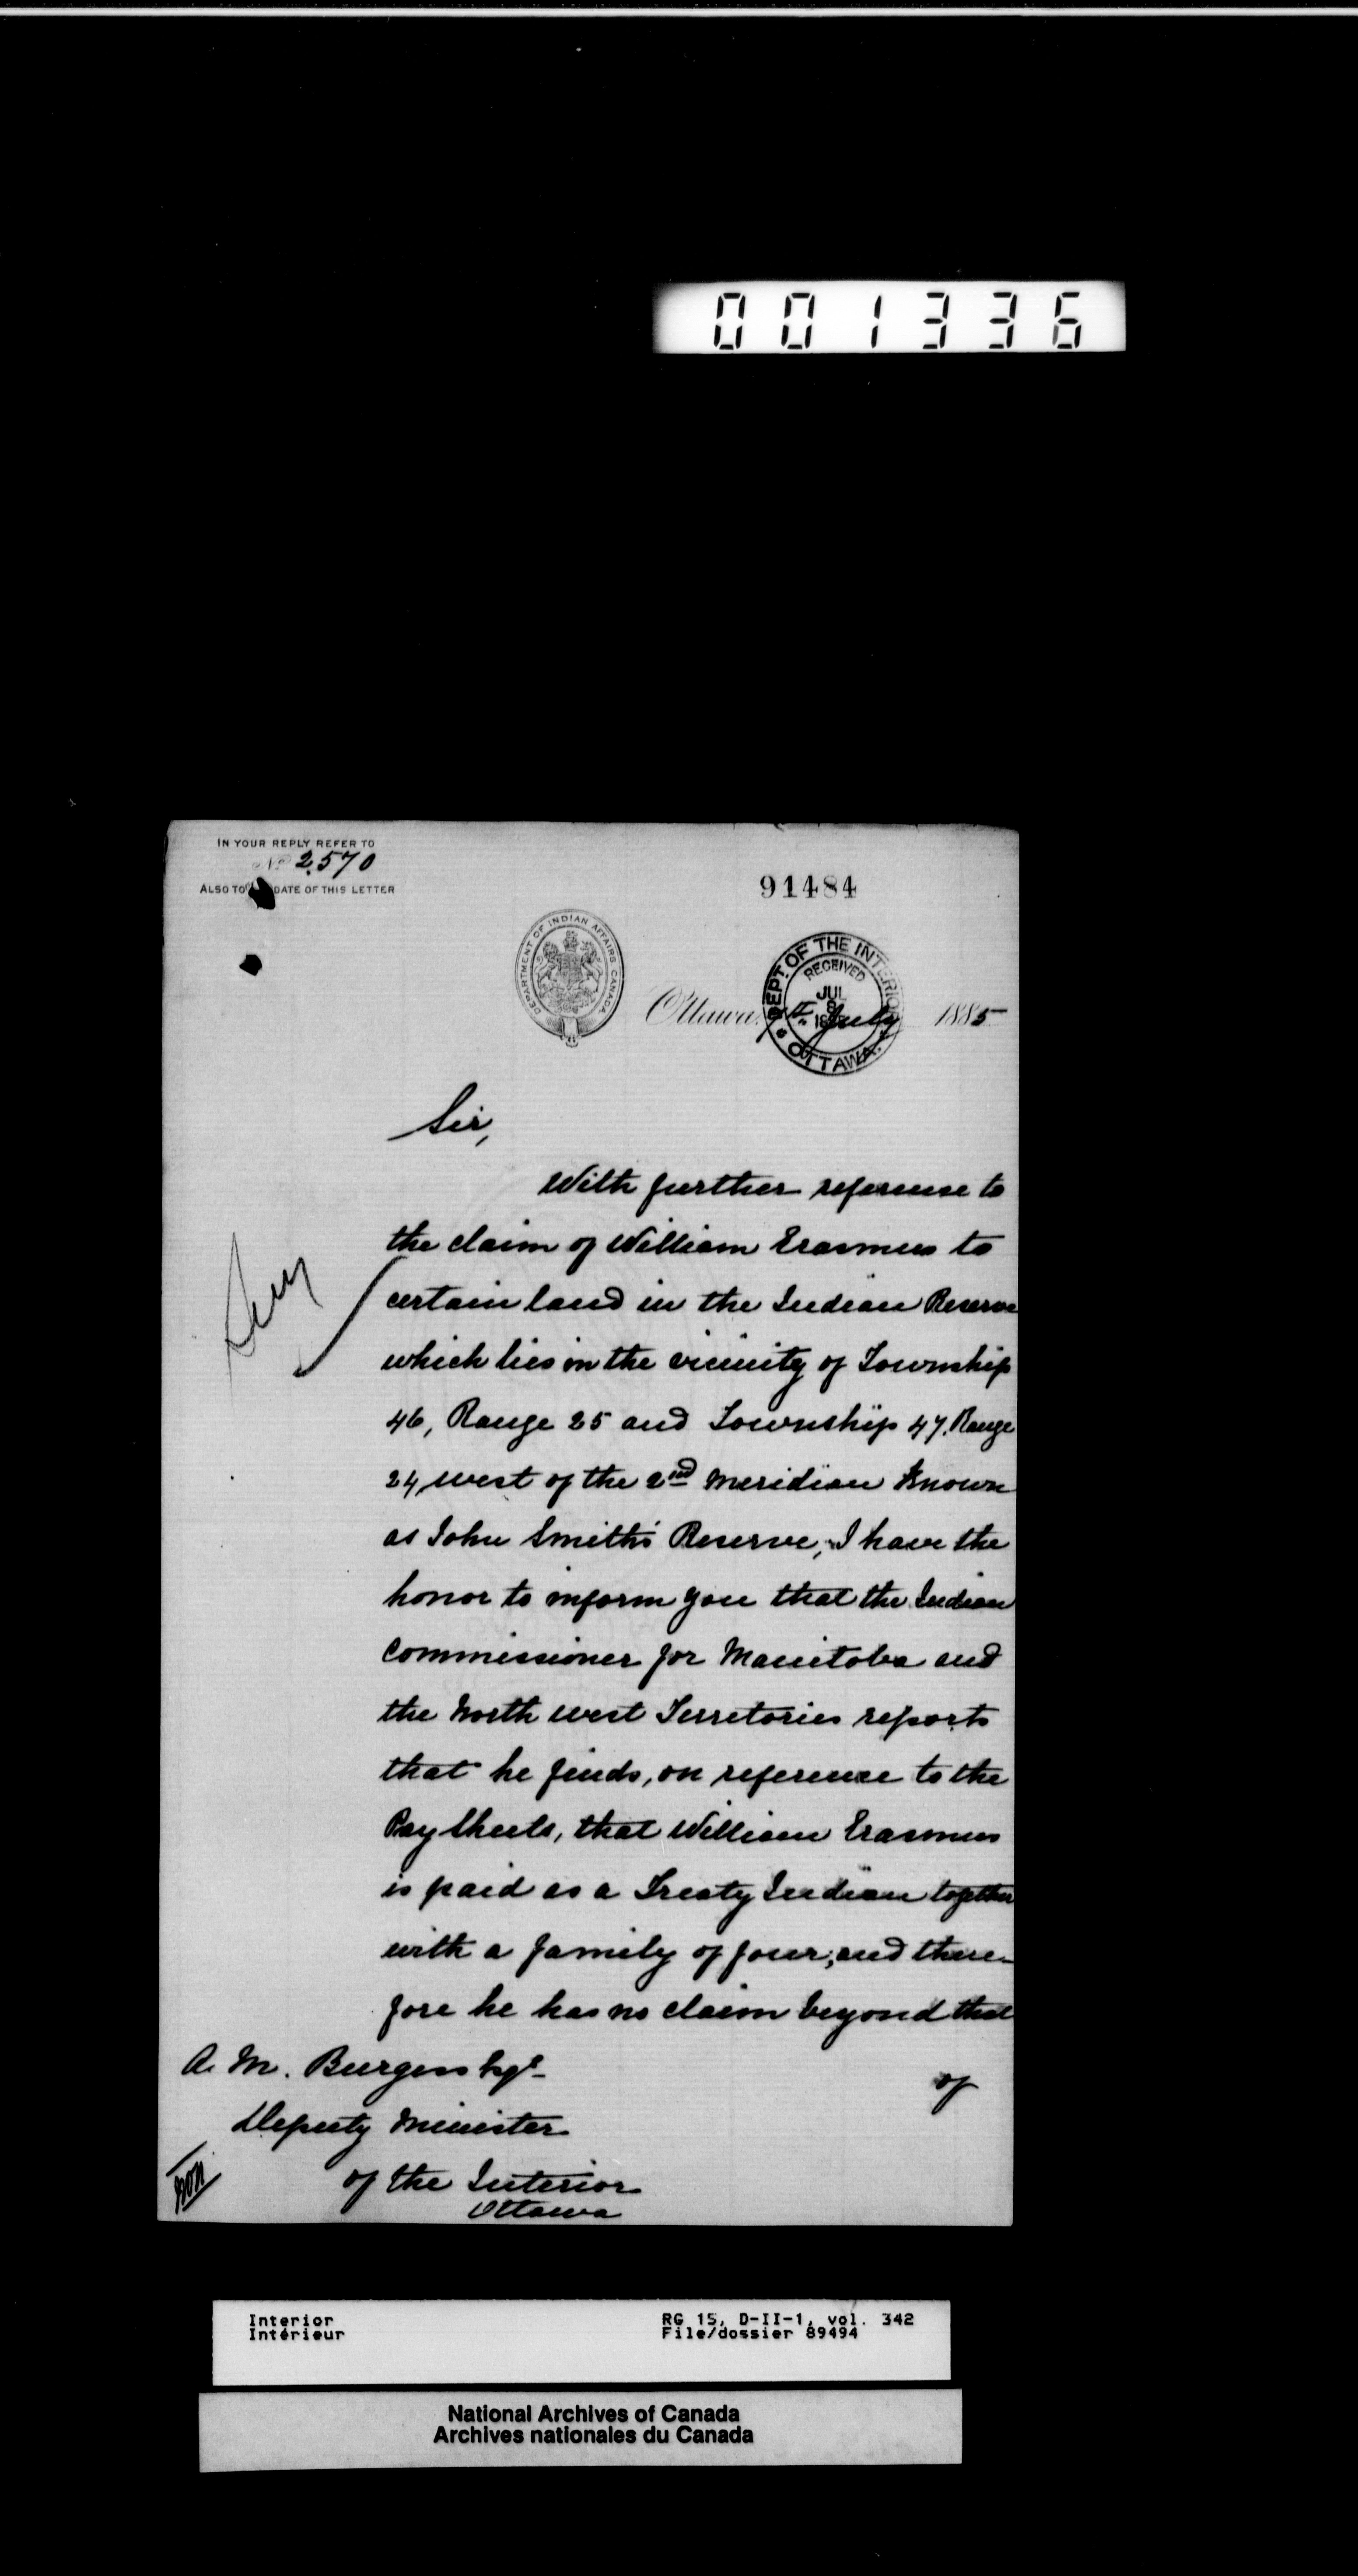 001336
IN YOUR REPLY REFER TO
No 2570
ALSO TO DATE OF THIS LETTER
91484
DEPARTMENT OF INDIAN AFFAIRS CANADA
DEPT. OF THE INTERIOR
RECEIVED
JUL
8
OTTAWA.
Ottawa, 7th July 1885
Sir,
With further reference to
the claim of William Erasmus to
certain land in the Indian Reserve
which lies in the vicinity of Township
46, Range 25 and Township 47, Range
24, west of the 2nd Meridian known
as John Smith's Reserve, I have the
honor to inform you that the Indian
Commissioner for Manitoba and
the North west Territories reports
that he finds, on reference to the
Pay Sheets, that William Erasmus
is paid as a Treaty Indian together
with a family of four; and there-
fore he has no claim beyond that
of
A. M. Burgess Esqr
Deputy Minister
of the Interior
Ottawa
Interior
Intérieur
RG 15, D-II-1, vol. 342
File/dossier 89494
National Archives of Canada
Archives nationales du Canada